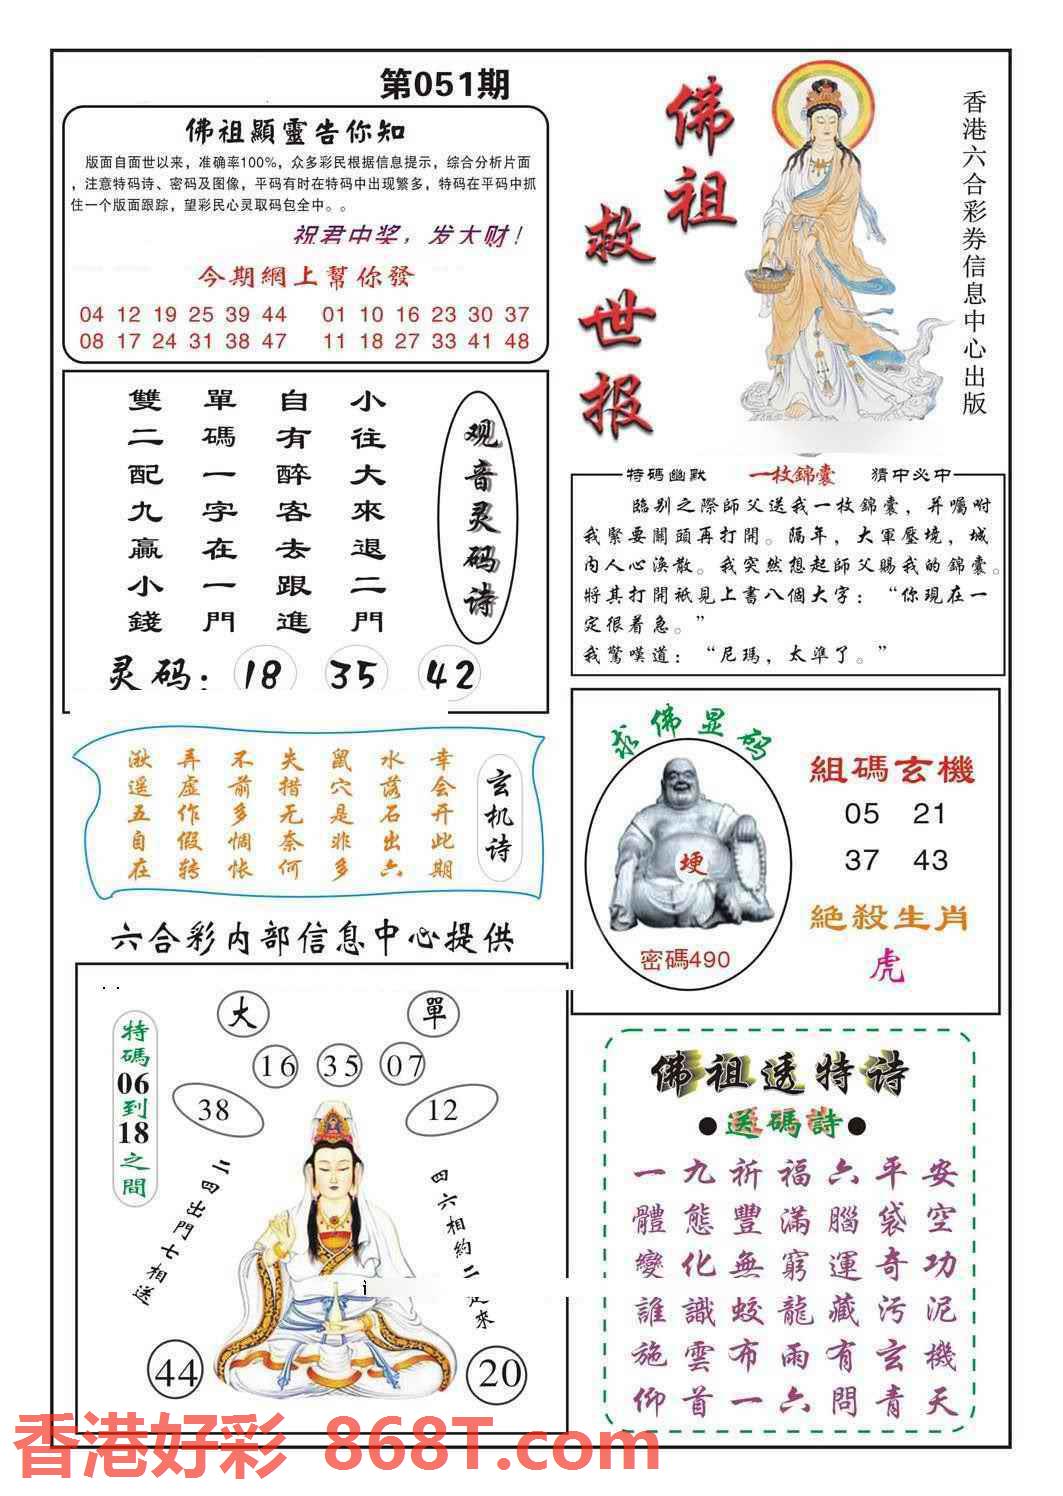 第051期
佛祖顯靈告你知
版面自面世以来，准确率100%，众多彩民根据信息提示，综合分析片面
，注意特码诗、密码及图像，平码有时在特码中出现繁多，特码在平码中抓
住一个版面跟踪，望彩民心灵取码包全中。。
祝君中奖，发大财！
今期網上幫你發
04 12 19 25 39 44 01 10 16 23 30 37
08 17 24 31 38 47 11 18 27 33 41 48
佛祖
救世报
香港六合彩券信息中心出版
观音灵码诗
小往大來退二門
自有醉客去跟進
單碼一字在一門
雙二配九贏小錢
灵码：18 35 42
特碼幽默 一枚錦囊 猜中必中
臨别之際師父送我一枚錦囊，并囑咐
我緊要關頭再打開。隔年，大軍壓境，城
内人心渙散。我突然想起師父賜我的錦囊。
將其打開衹見上書八個大字：“你現在一
定很着急。”
我驚嘆道：“尼瑪，太準了。”
玄机诗
幸会开此期
水落石出六
鼠穴是非多
失措无奈何
不前多惆怅
弄虚作假转
湫遥五自在
求佛显码
埂
密碼490
組碼玄機
05 21
37 43
絕殺生肖
虎
六合彩内部信息中心提供
特碼06到18之間
大 單
16 35 07
38 12
二四出門七相送
四六相約二
來
44 20
佛祖透特诗
●送碼詩●
一九祈福六平安
體態豐滿腦袋空
變化無窮運奇功
誰識蛟龍藏污泥
施雲布雨有玄機
仰首一六問青天
香港好彩 868T.com